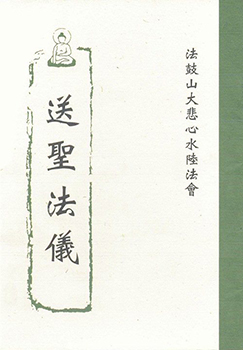 法鼓山大悲心水陸法會
送聖法儀